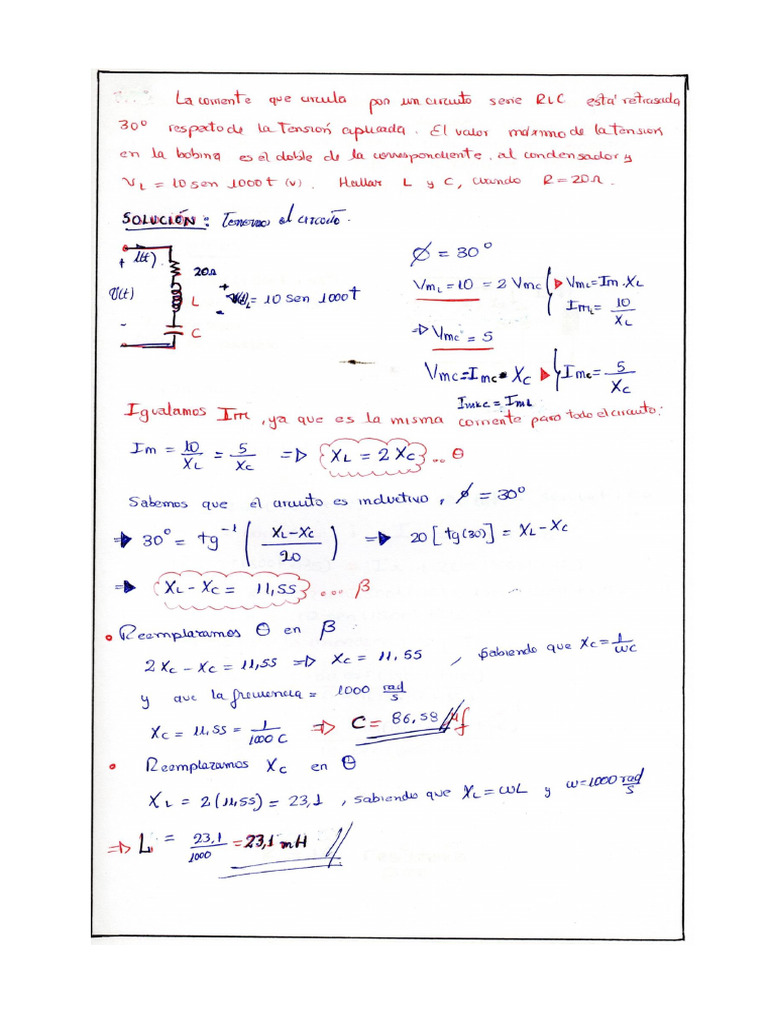 La corriente que circula por un circuito serie RLC está retrasada
30° respecto de la Tensión aplicada. El valor máximo de la tension
en la bobina es el doble de la correspondiente al condensador y
VL = 10 sen 1000t (v). Hallar L y C, cuando R = 20Ω.
SOLUCIÓN: Tenemos el circuito.
i(t)
+
20Ω
V(t)
L
+
V(t)L = 10 sen 1000t
-
-
C
ϕ = 30°
VmL = 10 = 2 Vmc
VmL = Im . XL
ImL = 10/XL
⇒ Vmc = 5
Vmc = Imc • Xc
Imc = 5/Xc
Imc = ImL
Igualamos Im, ya que es la misma corriente para todo el circuito:
Im = 10/XL = 5/Xc ⇒ XL = 2Xc ... θ
Sabemos que el circuito es inductivo, ϕ = 30°
⇒ 30° = tg⁻¹ ( XL-Xc / 20 ) ⇒ 20 [tg(30)] = XL-Xc
⇒ XL - Xc = 11,55 ... β
• Reemplazamos θ en β
2Xc - Xc = 11,55 ⇒ Xc = 11,55 , Sabiendo que Xc = 1/ωC
y que la frecuencia = 1000 rad/s
Xc = 11,55 = 1/1000C ⇒ C = 86,58 μf
• Reemplazamos Xc en θ
XL = 2(11,55) = 23,1 , sabiendo que XL = ωL y ω=1000 rad/s
⇒ L = 23,1/1000 = 23,1 mH